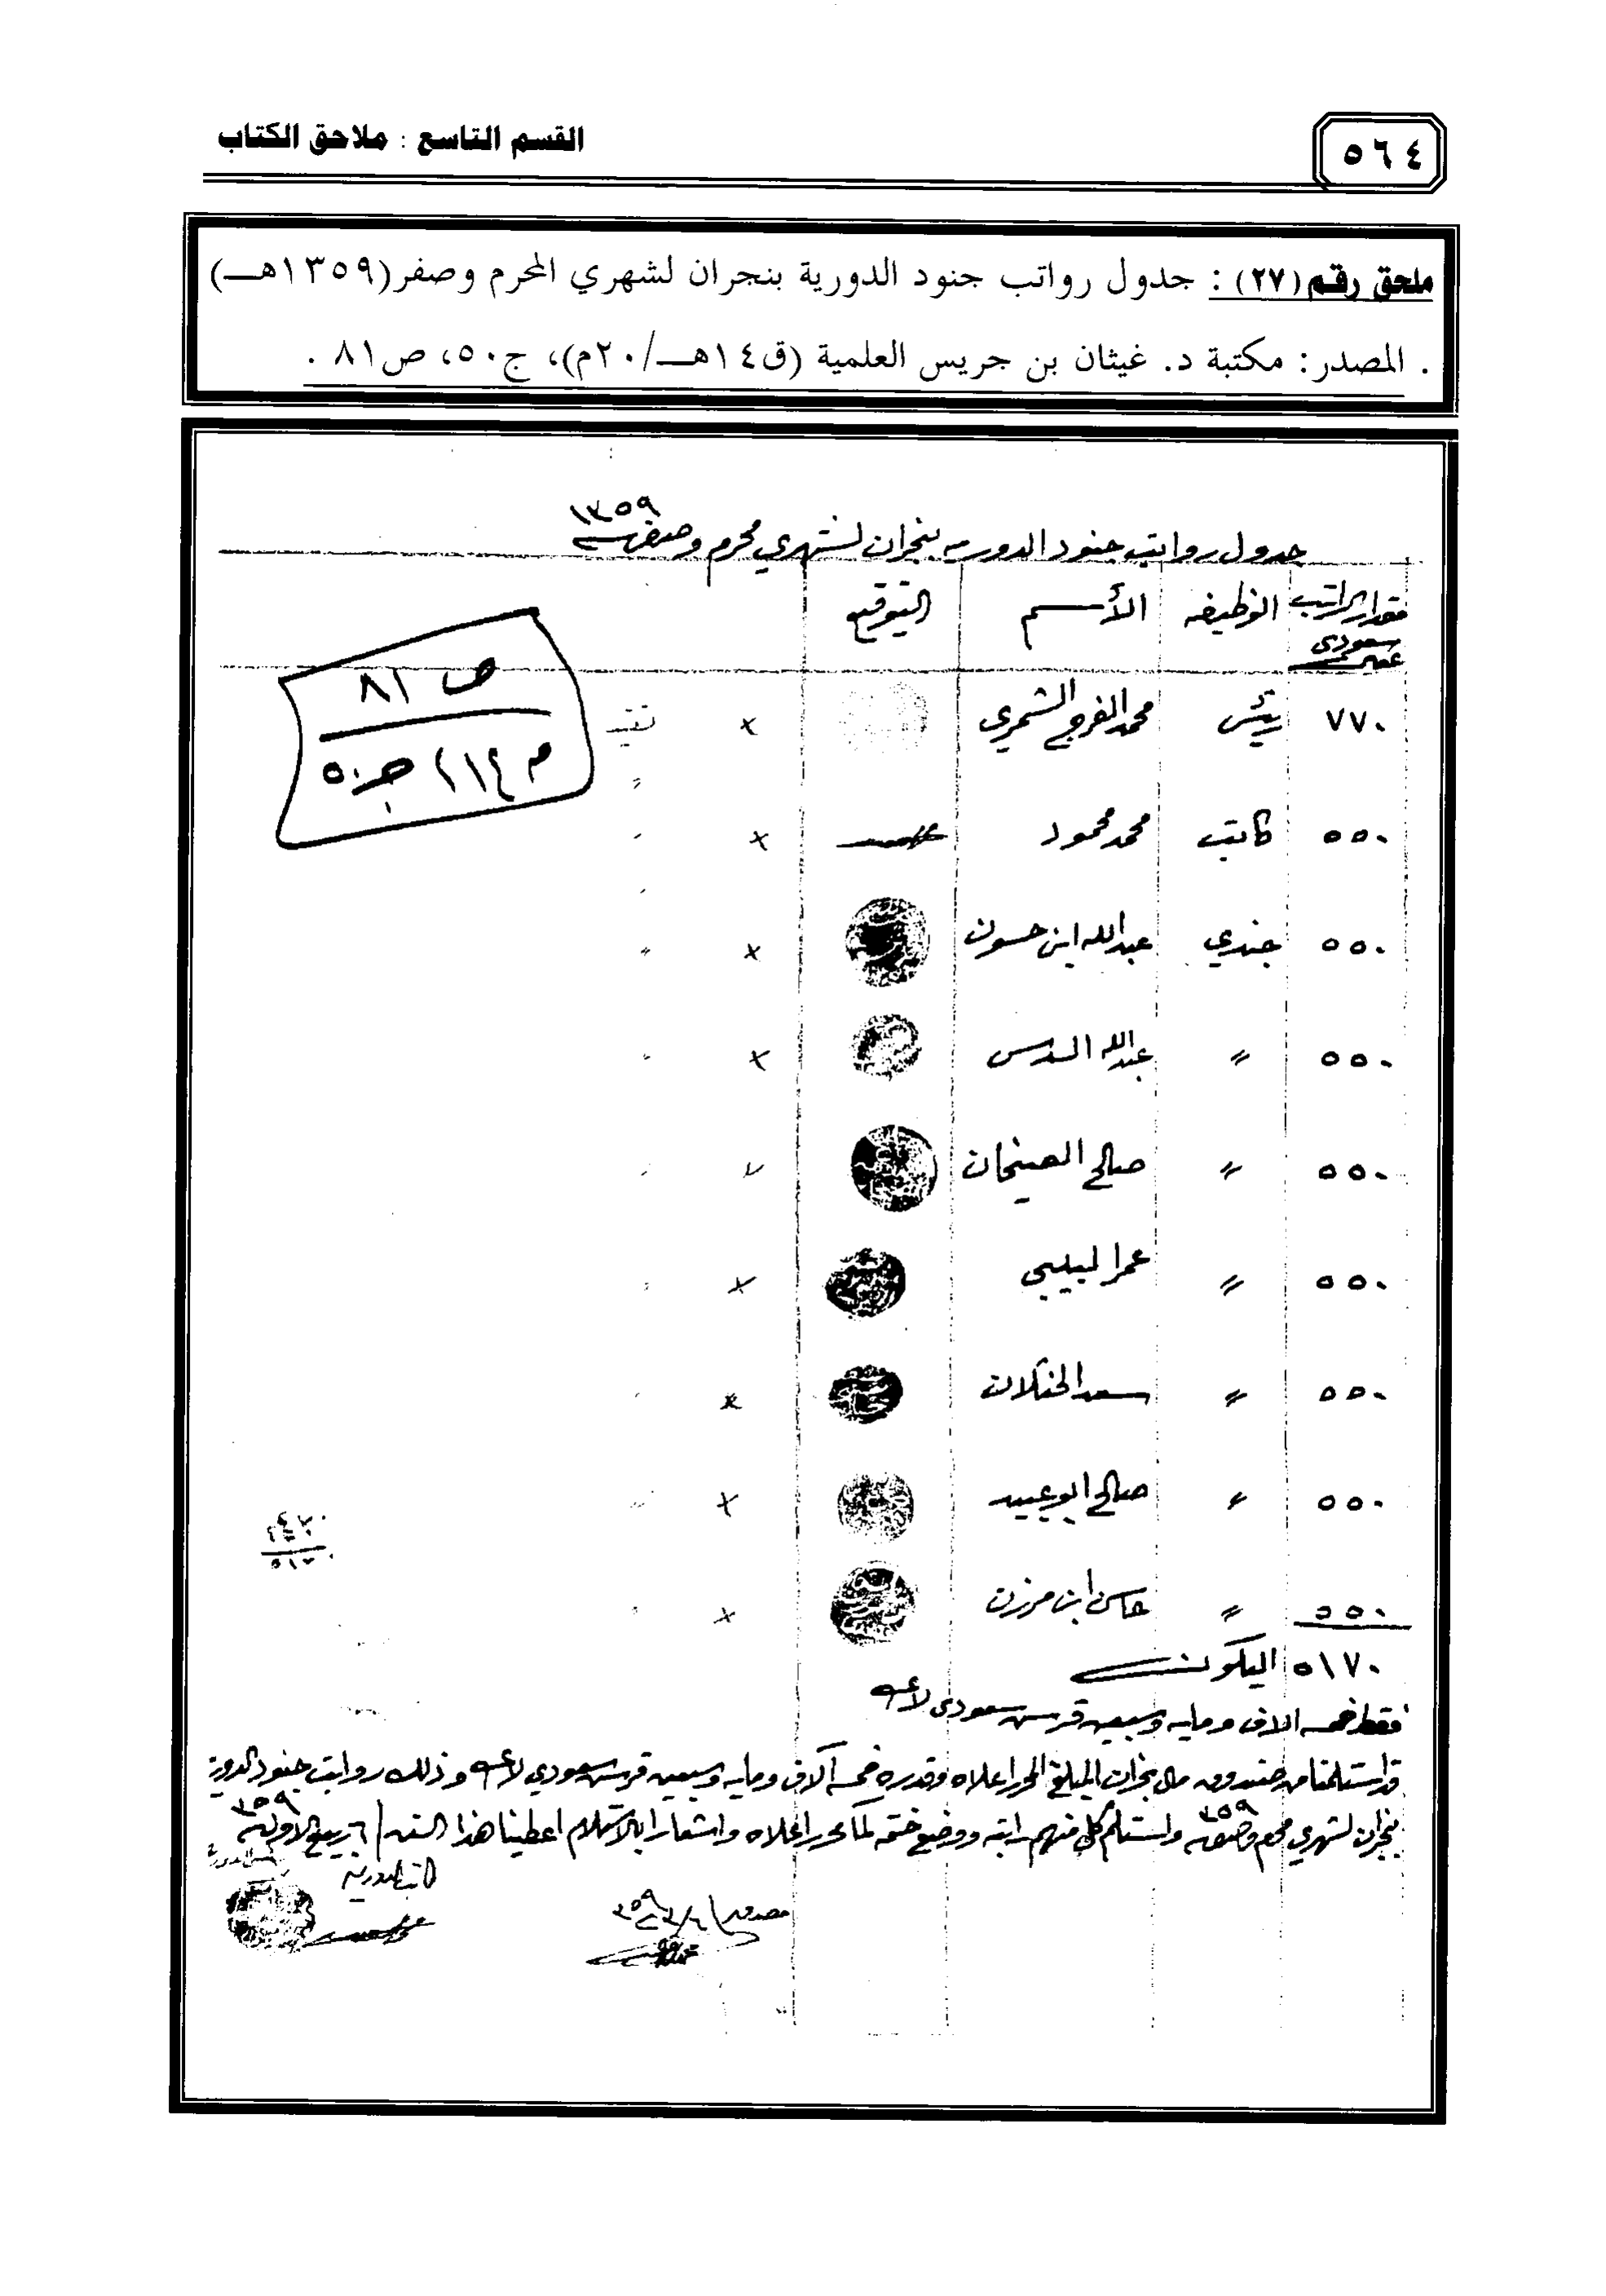 القسم التاسع : ملاحق الكتاب
٥٦٤
ملحق رقم (٢٧) : جدول رواتب جنود الدورية بنجران لشهري المحرم وصفر (١٣٥٩هـ)
. المصدر: مكتبة د. غيثان بن جريس العلمية (ق١٤هـ/٢٠م)، ج٥٠، ص٨١ .
جدول رواتب جنود الدوريه بنجران لشهري محرم وصفر سنه ١٣٥٩
مقدار الراتب الوظيفه الأسم التوقيع
سعودي
ص ٨١
م ١١٤ ج ٥٠
٧٧٠ رئيس محمد الفرج الشمري ×
٥٥٠ كاتب محمد محمود ×
٥٥٠ جندي عبدالله ابن حسون ×
٥٥٠ " عبدالله ×
٥٥٠ " صالح
٥٥٠ " عمر ×
٥٥٠ " سعد ×
٥٥٠ " صالح ابو عبيد ×
٥٥٠ " حاسن ابن مرزن ×
٥١٧٠ اليكون
فقط خمسه الاف ومايه وسبعين قرش سعودي لاغير
قد استلمنا من صندوق مال نجران المبلغ المحرر اعلاه وقدره خمسة آلاف ومايه وسبعين قرش سعودي لاغير وذلك رواتب جنود الدورية
بنجران لشهري محرم وصفر سنه ٣٥٩ واستلم كل منهم راتبه ووضع ختمه كما تحرر اعلاه واشعارا بالاستلام اعطينا هذا السند ٦ ربيع الاول سنه ٣٥٩
كاتب الدوريه